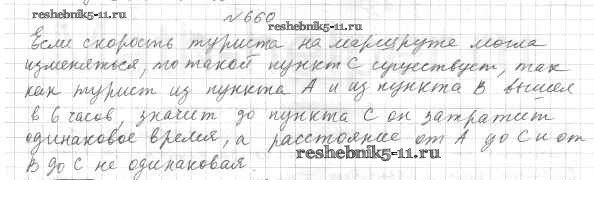 №660
reshebnik5-11.ru
reshebnik5-11.ru
Если скорость туриста на маршруте могла
изменяться, то такой пункт С существует, так
как турист из пункта А и из пункта В вышел
в 6 часов, значит до пункта С он затратит
одинаковое время, а расстояние от А до С и от
В до С не одинаковая.
reshebnik5-11.ru